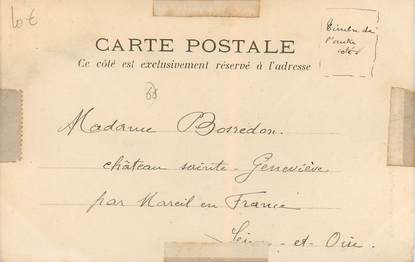 CARTE POSTALE
Ce côté est exclusivement réservé à l'adresse
Timbre de
l'autre
côté
Madame Bosredon
château sainte-Geneviève
par Mareil en France
Seine-et-Oise